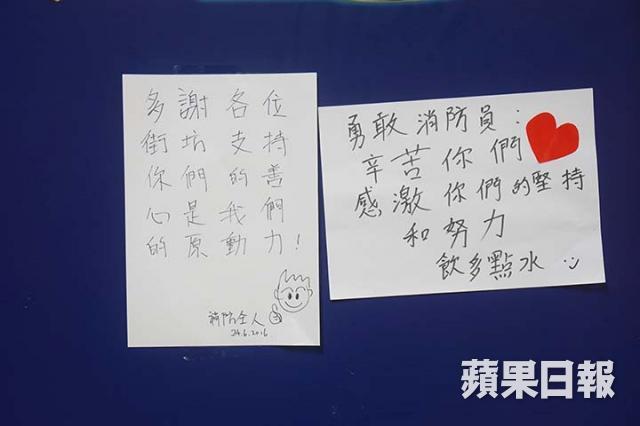 多謝各位
街坊支持
你們的善
心是我們
的原動力!
消防仝人
24.6.2016
勇敢消防員:
辛苦你們
感激你們的堅持
和努力
飲多點水
蘋果日報